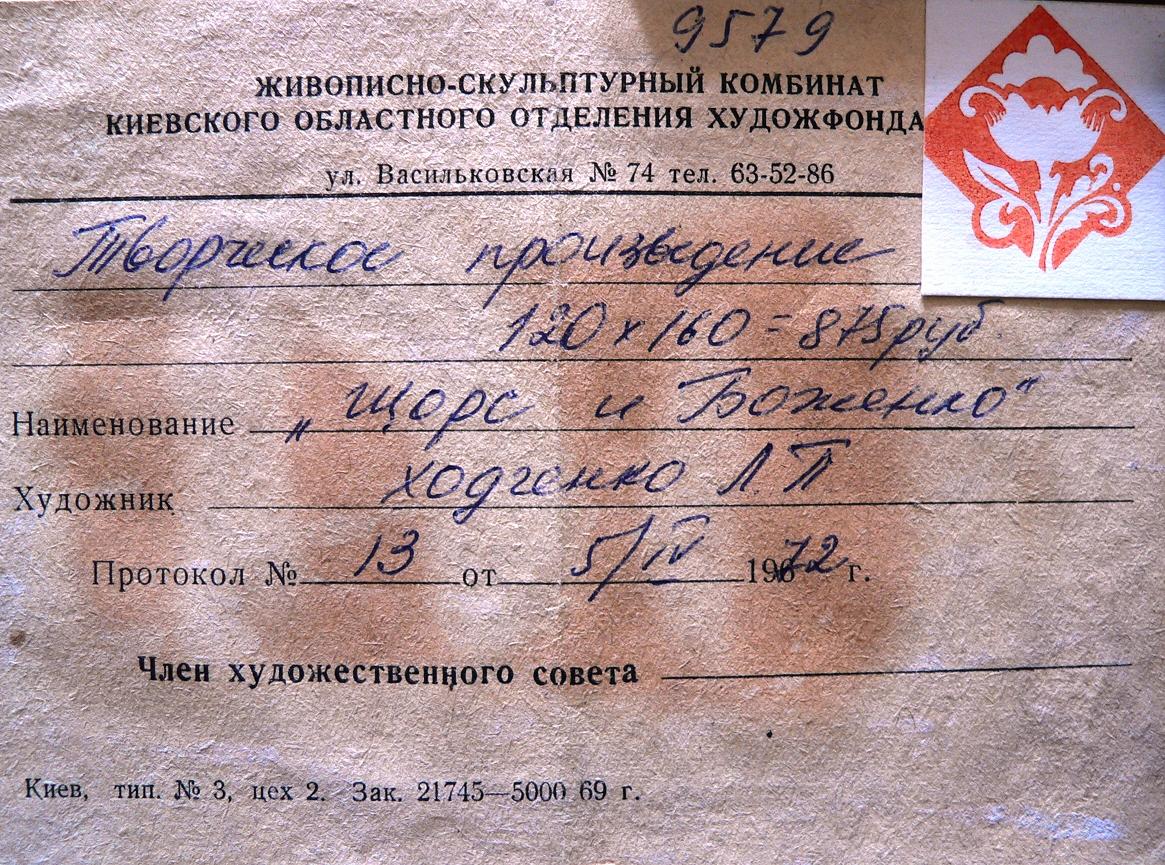 9579
ЖИВОПИСНО-СКУЛЬПТУРНЫЙ КОМБИНАТ
КИЕВСКОГО ОБЛАСТНОГО ОТДЕЛЕНИЯ ХУДОЖФОНДА
ул. Васильковская № 74 тел. 63-52-86
Творческое произведение
120 х 160 = 875 руб.
Наименование „Щорс и Боженко“
Художник Ходченко Л П
Протокол № 13 от 5/IV 1972 г.
Член художественного совета
Киев, тип. № 3, цех 2. Зак. 21745—5000 69 г.